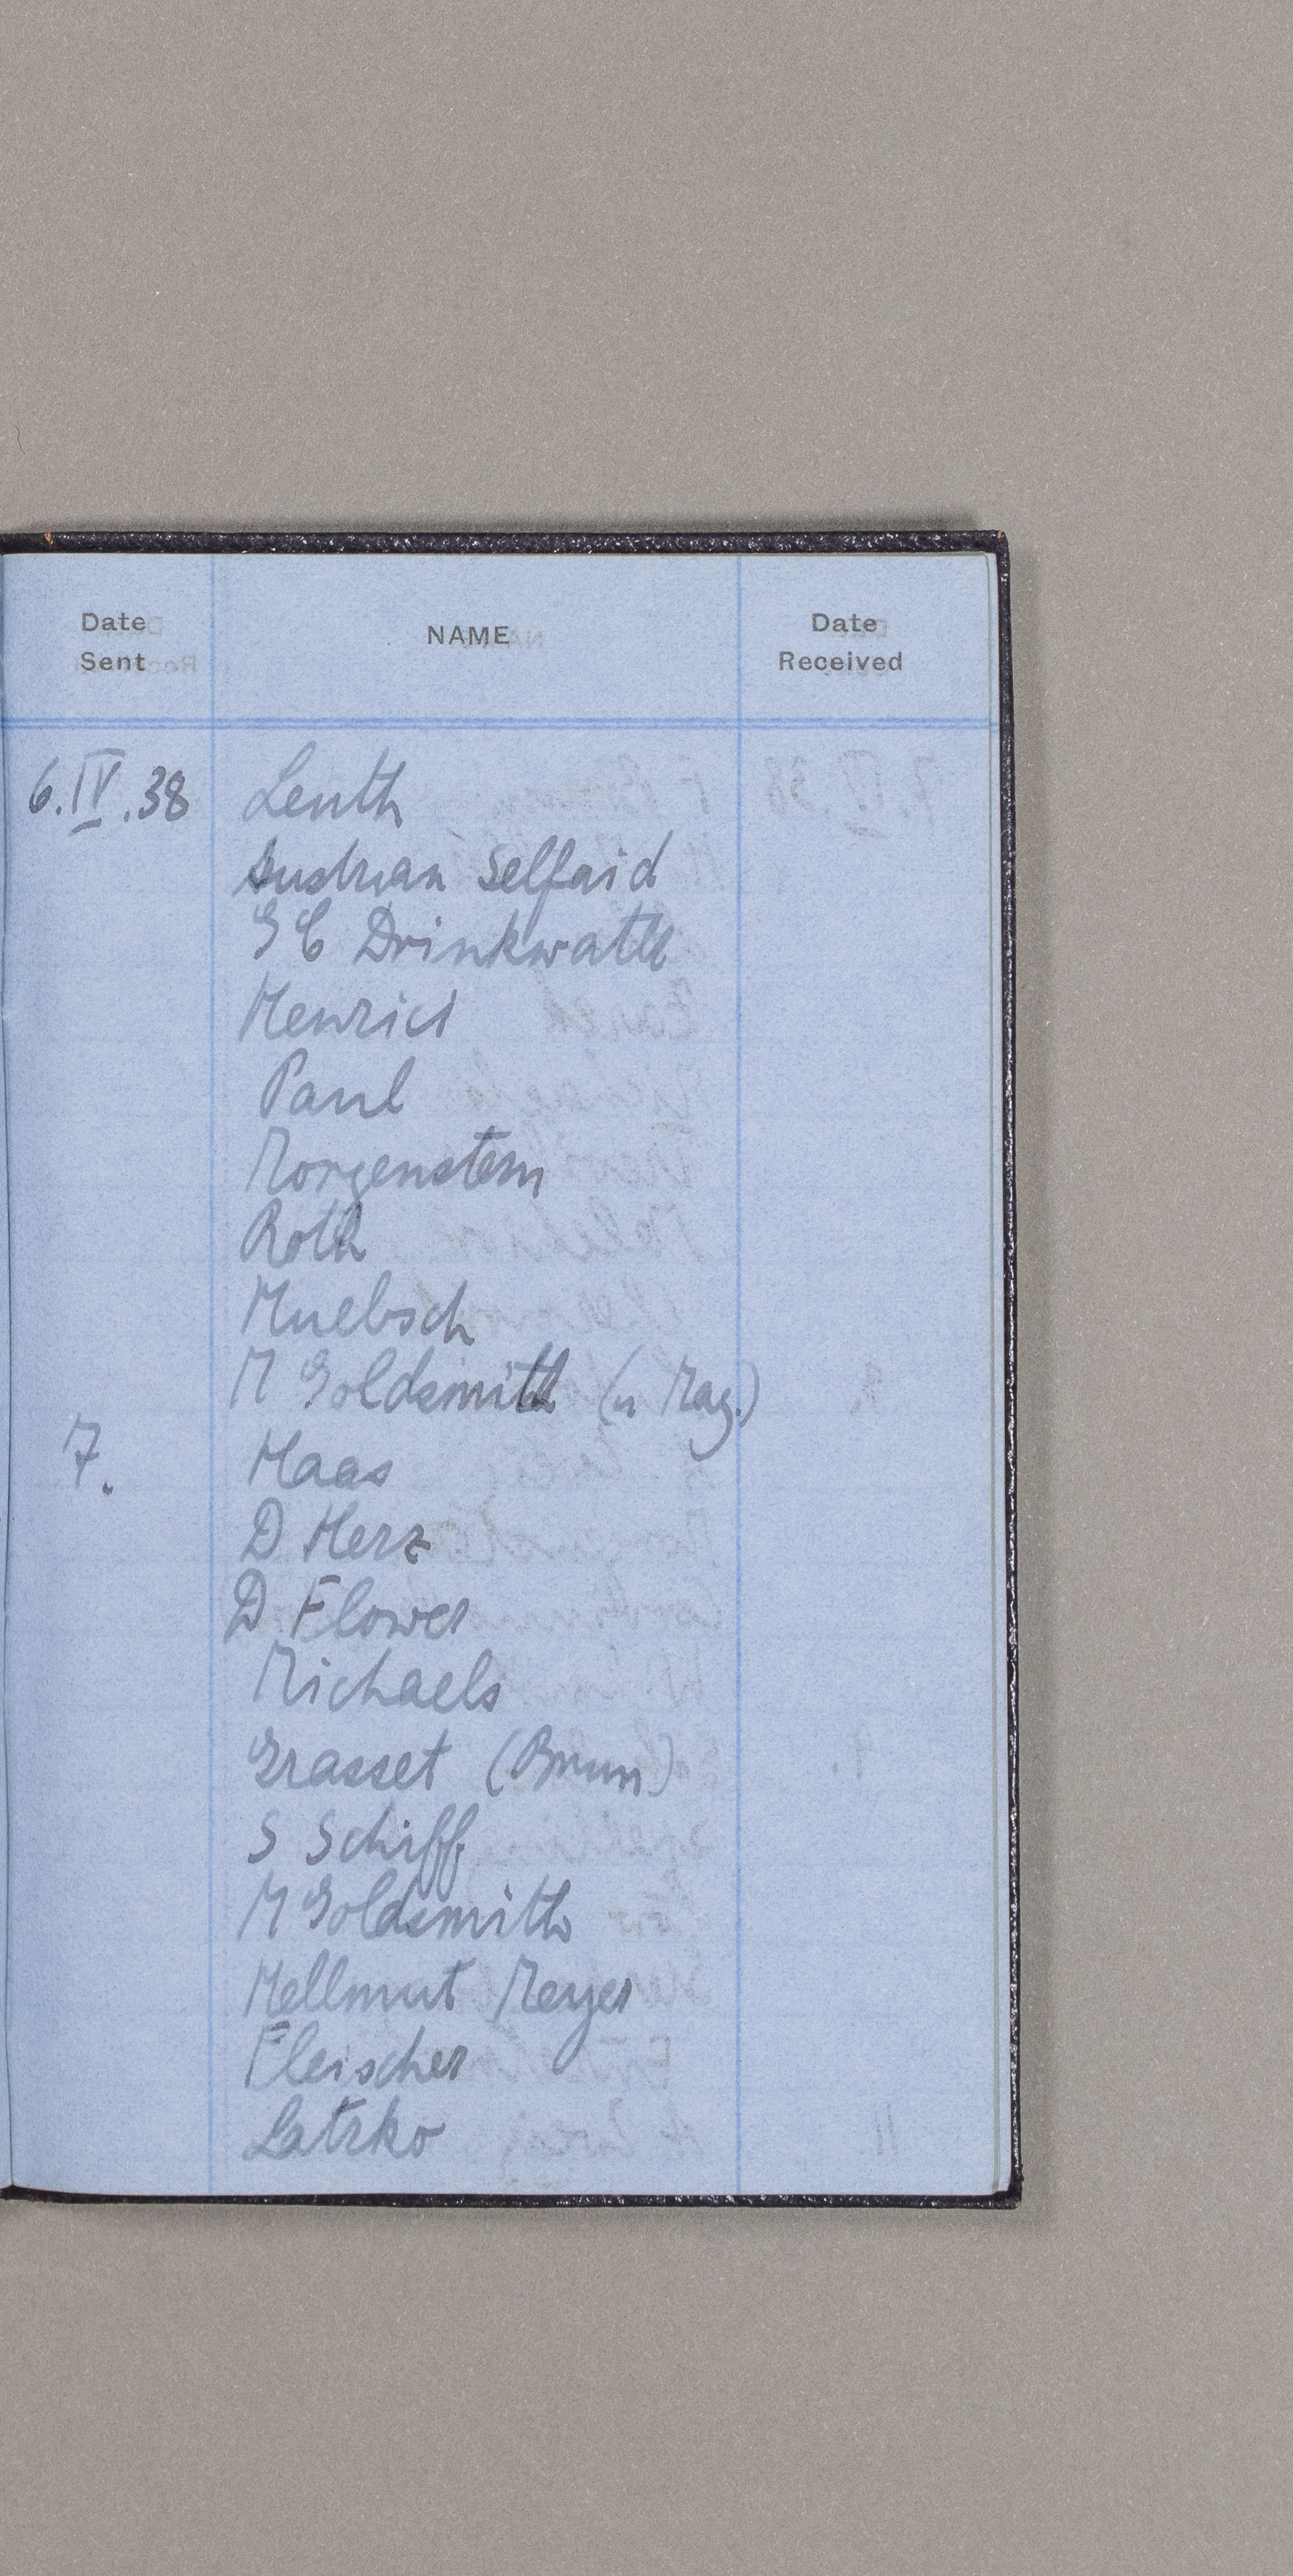 Date Sent NAME Date Received
6.IV.38 Leuth
Austrian Selfaid
G C Drinkwater
Henrici
Paul
Morgenstern
Roth
Huebsch
M Goldsmith (u Mag.)
7. Haas
D Herz
D Flower
Michaels
Grasset (Brun)
S Schiff
M Goldsmith
Hellmut Meyer
Fleischer
Latzko